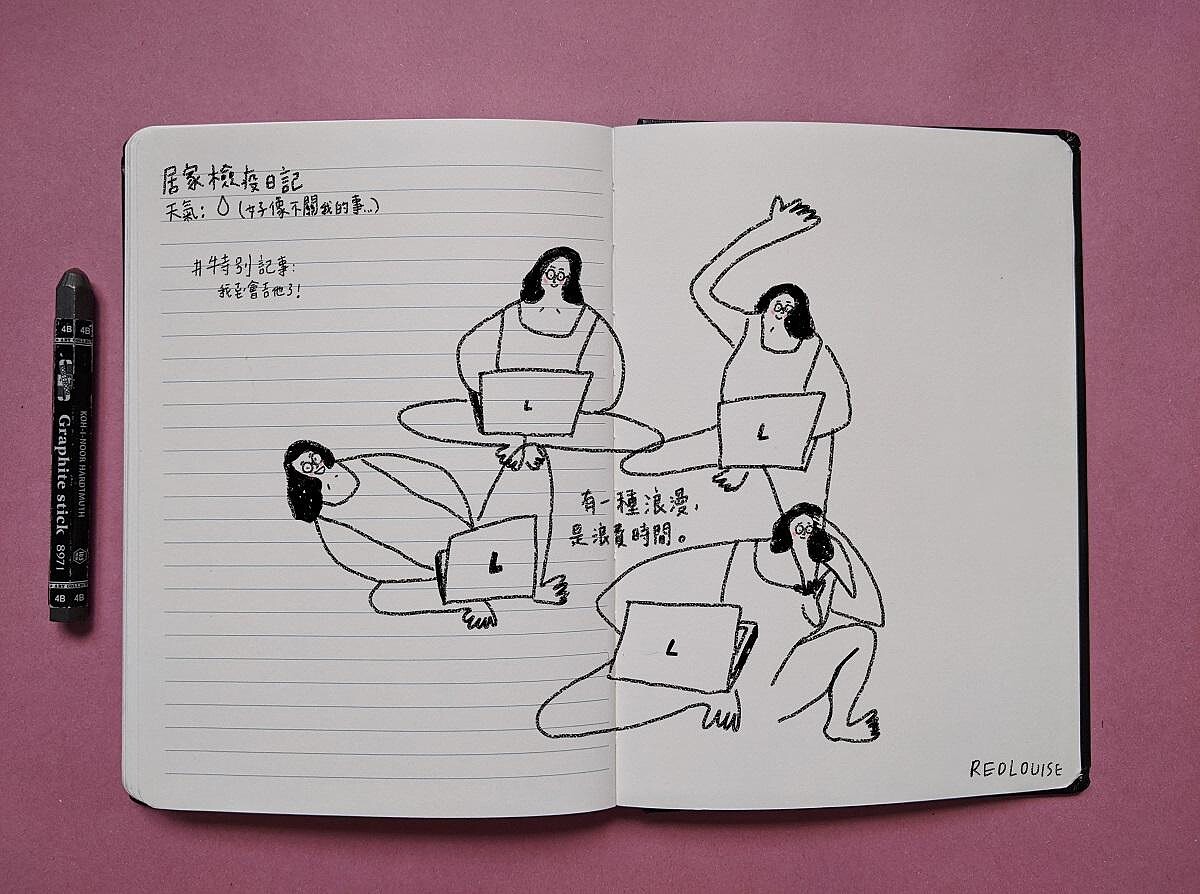 居家檢疫日記
天氣: (好像不關我的事...)
#特別記事:
我到會吉他了!
有一種浪漫,
是浪費時間。
L
L
L
L
REDLOUISE
4B 4B
KOH-I-NOOR HARDTMUTH
Graphite stick 8971
4B 4B